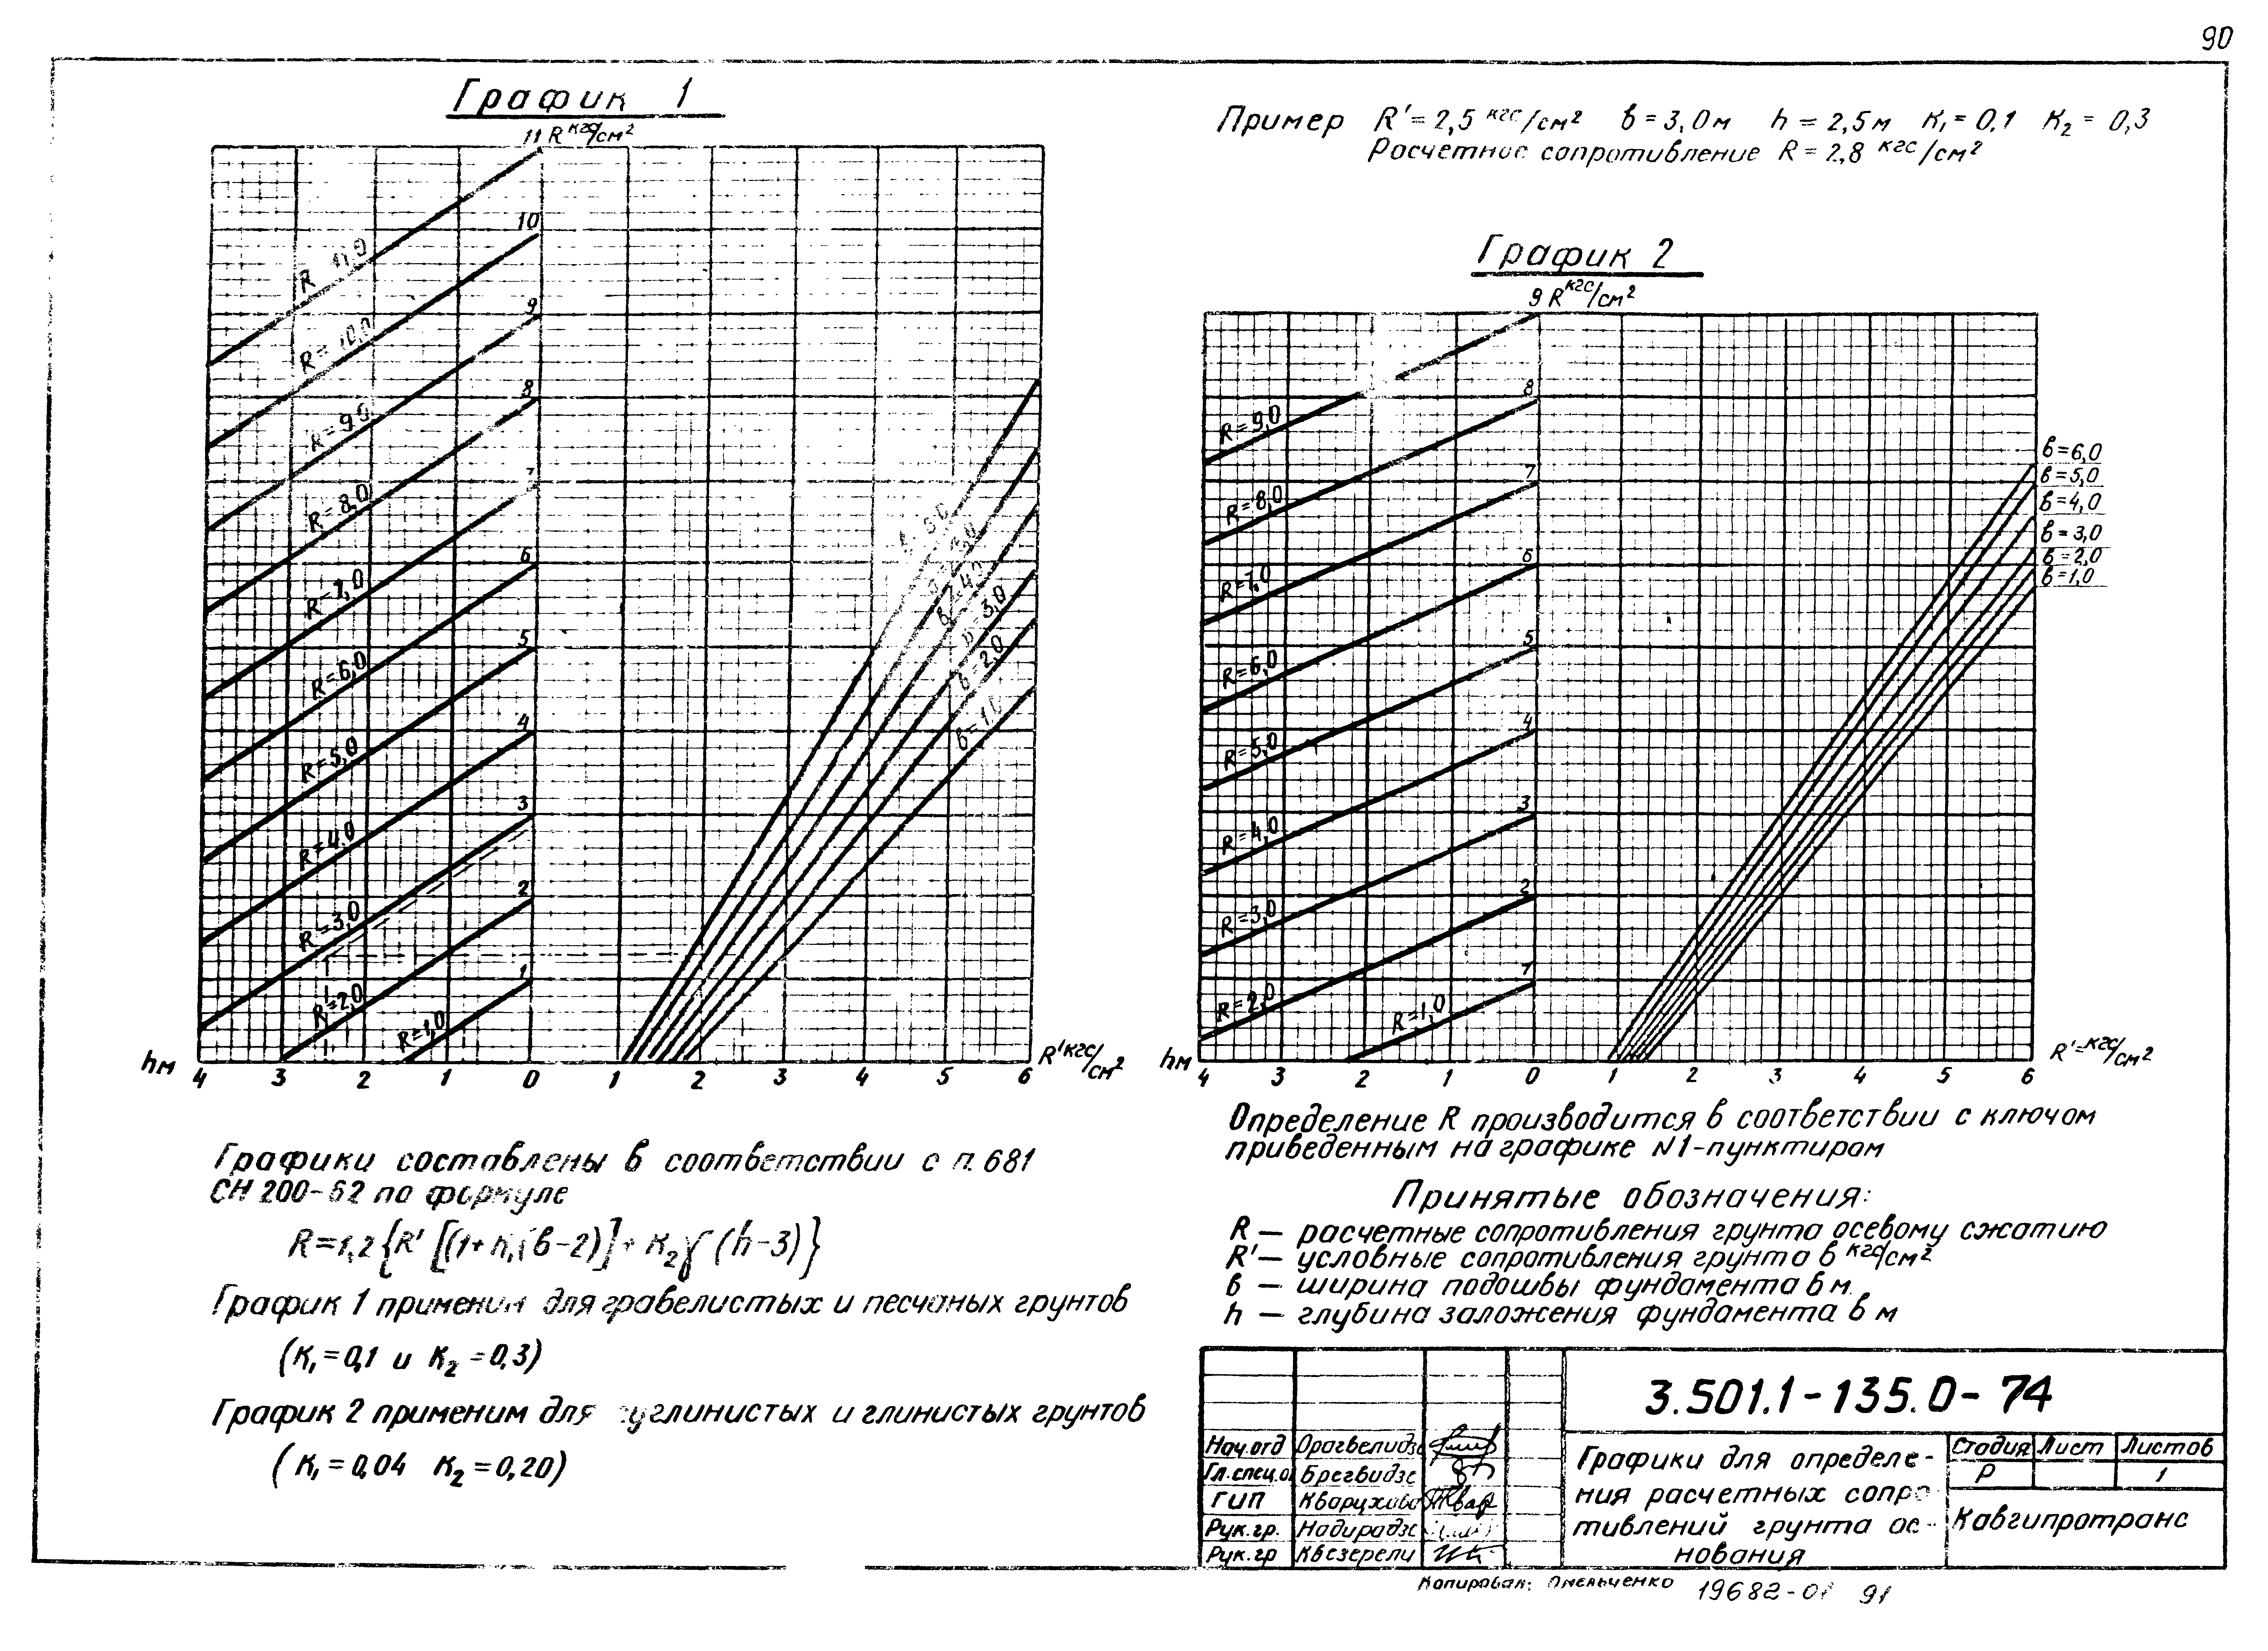 90
График 1
11 R кгс/см²
10
9
8
7
6
5
4
3
2
1
R 11,0
R=10,0
R=9,0
R=8,0
R=7,0
R=6,0
R=5,0
R=4,0
R=3,0
R=2,0
R=1,0
в=4,0
в=3,0
в=2,0
в=1,0
hм 4 3 2 1 0 1 2 3 4 5 6 R' кгс/см²
Графики составлены в соответствии с п. 681
СН 200-62 по формуле
R=1,2{R'[(1+К₁(в-2)]+К₂γ(h-3)}
График 1 применим для гравелистых и песчаных грунтов
(К₁=0,1 и К₂=0,3)
График 2 применим для суглинистых и глинистых грунтов
(К₁=0,04 К₂=0,20)
Пример R'=2,5 кгс/см² в=3,0м h=2,5м К₁=0,1 К₂=0,3
Расчетное сопротивление R=2,8 кгс/см²
График 2
9 R кгс/см²
8
7
6
5
4
3
2
1
R=9,0
R=8,0
R=7,0
R=6,0
R=5,0
R=4,0
R=3,0
R=2,0
R=1,0
в=6,0
в=5,0
в=4,0
в=3,0
в=2,0
в=1,0
hм 4 3 2 1 0 1 2 3 4 5 6 R'=кгс/см²
Определение R производится в соответствии с ключом
приведенным на графике N1-пунктиром
Принятые обозначения:
R — расчетные сопротивления грунта осевому сжатию
R' — условные сопротивления грунта в кгс/см²
в — ширина подошвы фундамента в м.
h — глубина заложения фундамента в м
3.501.1-135.0-74
Нач.отд Орагвелидзе
Гл.спец.о
ГИП
Рук.гр. Надирадзе
Рук.гр Квезерели
Графики для определе-
ния расчетных сопро-
тивлений грунта ос-
нования
Стадия Лист Листов
Р 1
Кавгипротранс
Копировал: Омельченко 19682-01 91